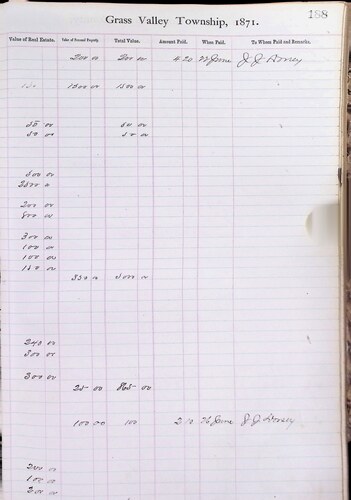 188
Grass Valley Township, 1871.
Value of Real Estate. Value of Personal Property. Total Value. Amount Paid. When Paid. To Whom Paid and Remarks.
200 00 200 00 4 20 June J. J. Dorsey
1500 00 1500
50 00 50 00
50 00 50 00
500 00
200 00
800 00
300 00
100 00
100 00
150 00
350 00
240 00
300 00
300 00
25 00 865 00
100 00 100 2 10 June J. J. Dorsey
200 00
100 00
200 00